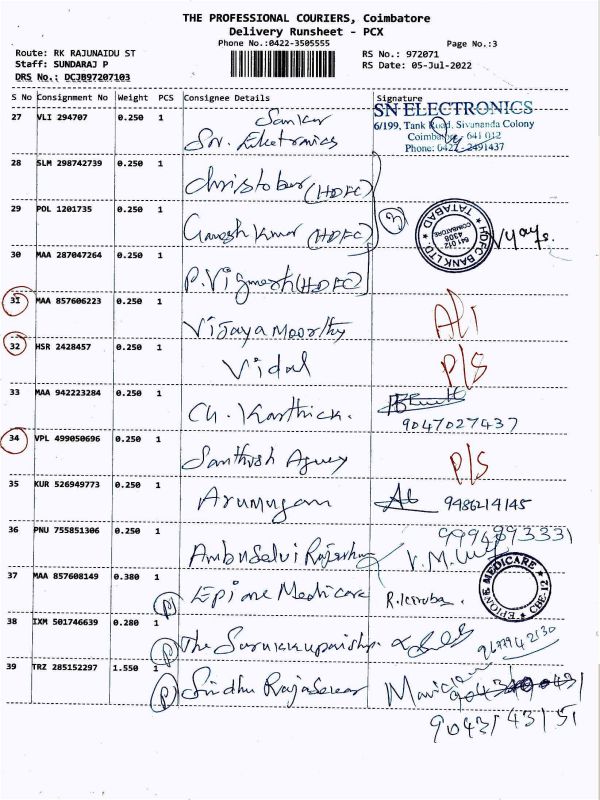 THE PROFESSIONAL COURIERS, Coimbatore
Delivery Runsheet - PCX
Phone No.:0422-3505555
Page No.:3
Route: RK RAJUNAIDU ST
RS No.: 972071
Staff: SUNDARAJ P
RS Date: 05-Jul-2022
DRS No.: DCJB97207103
S No Consignment No Weight PCS Consignee Details Signature
27 VLI 294707 0.250 1 Sankar
SN ELECTRONICS
6/199, Tank Road, Sivananda Colony
Coimbatore - 641 012
Phone: 0422 - 2491437
28 SLM 298742739 0.250 1 Christober (HDFC)
29 POL 1201735 0.250 1 Ganesh Kumar (HDFC) 3
HDFC BANK LTD. TATABAD
641 012
COIMBATORE
30 MAA 287047264 0.250 1 P. Vignesh (HDFC)
31 MAA 857606223 0.250 1 Vijaya Moorthy
32 HSR 2428457 0.250 1 Vidal P/S
33 MAA 942223284 0.250 1 Ch. Karthick.
9047027437
34 VPL 499050696 0.250 1 Santhosh P/S
35 KUR 526949773 0.250 1 Arumugam 9486214145
36 PNU 755851306 0.250 1 9994893331
37 MAA 857608149 0.380 1 (P) Epione Medicare
EPIONE MEDICARE CBE-12
38 IXM 501746639 0.280 1 (P) The
39 TRZ 285152297 1.550 1 (P) Sindhu
9043143151